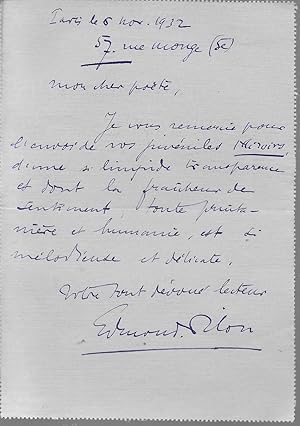 Paris le 6 nov. 1932
57. rue Monge (5e)
mon cher poète,
Je vous remercie pour
l'envoi de vos juvéniles Miroirs,
d'une si limpide transparence
et dont la fraîcheur de
sentiment, toute printa-
nière et humanisée, est si
mélodieuse et délicate.
Votre tout dévoué lecteur
Edmond Pilon